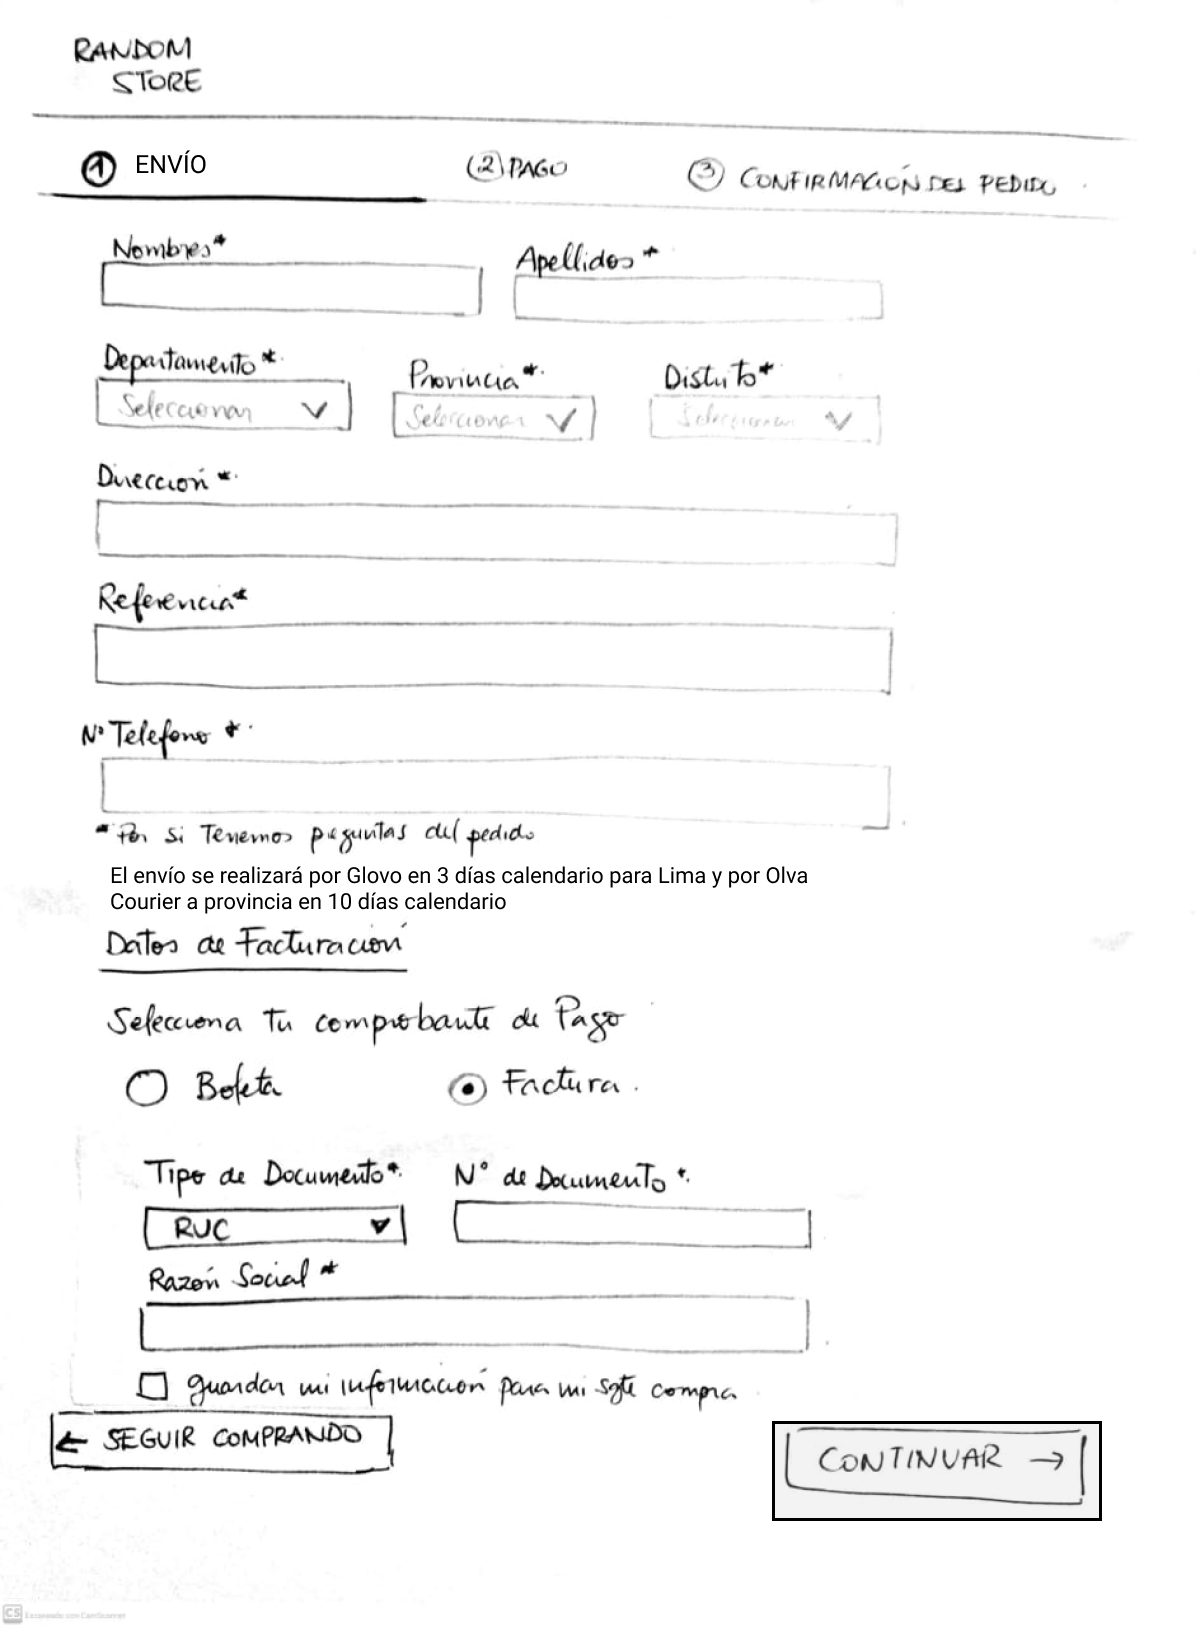 RANDOM
STORE
1 ENVÍO
(2) PAGO
3 CONFIRMACIÓN DEL PEDIDO
Nombres*
Apellidos*
Departamento*
Provincia*
Distrito*
Seleccionar
Seleccionar
Seleccionar
Dirección*
Referencia*
N° Telefono*
*Por si Tenemos preguntas del pedido
El envío se realizará por Glovo en 3 días calendario para Lima y por Olva
Courier a provincia en 10 días calendario
Datos de Facturación
Selecciona tu comprobante de Pago
Boleta
Factura.
Tipo de Documento*
N° de Documento*
RUC
Razón Social*
guardar mi información para mi sgte compra
← SEGUIR COMPRANDO
CONTINUAR →
CS Escaneado con CamScanner